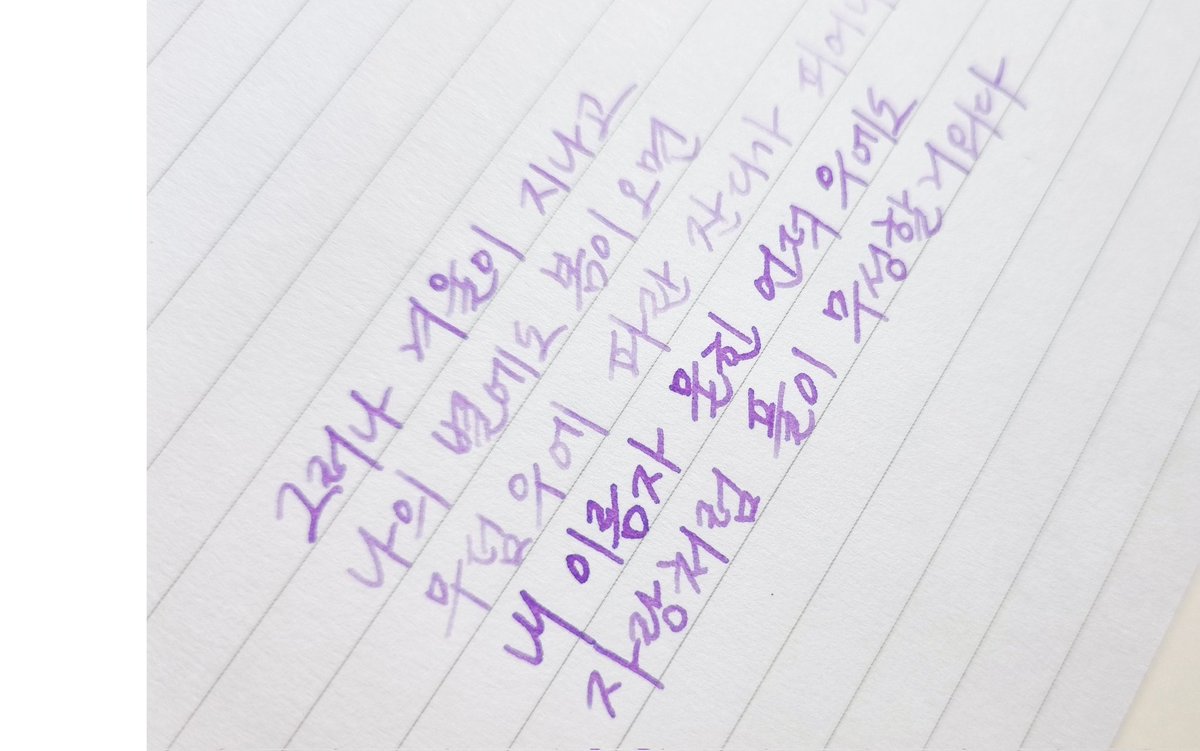 그러나 겨울이 지나고
나의 별에도 봄이 오면
무덤 우에 파란 잔디가 피어나
내 이름자 묻힌 언덕 우에도
자랑처럼 풀이 무성할 거외다